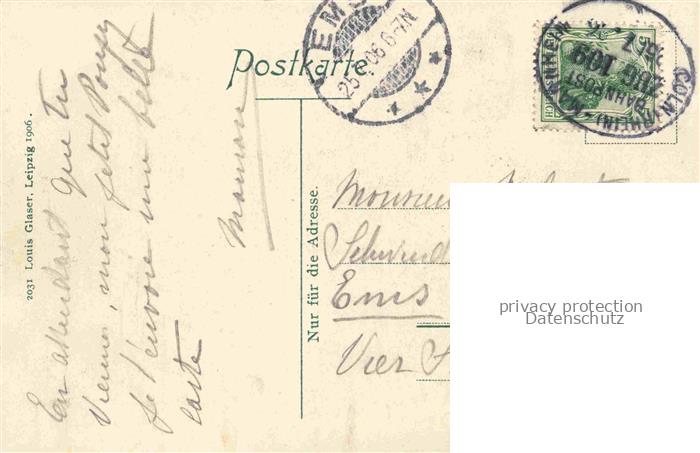 Postkarte.
EMS
25.7.06.6-7N
CÖLN(RHEIN)-MANNHEIM
BAHNPOST
ZUG 109
2031 Louis Glaser, Leipzig 1906.
En attendant que tu
viennes, mon petit
je t'envoie une belle
carte
Maman
Nur für die Adresse.
Monsieur
Ems
Vier
privacy protection
Datenschutz